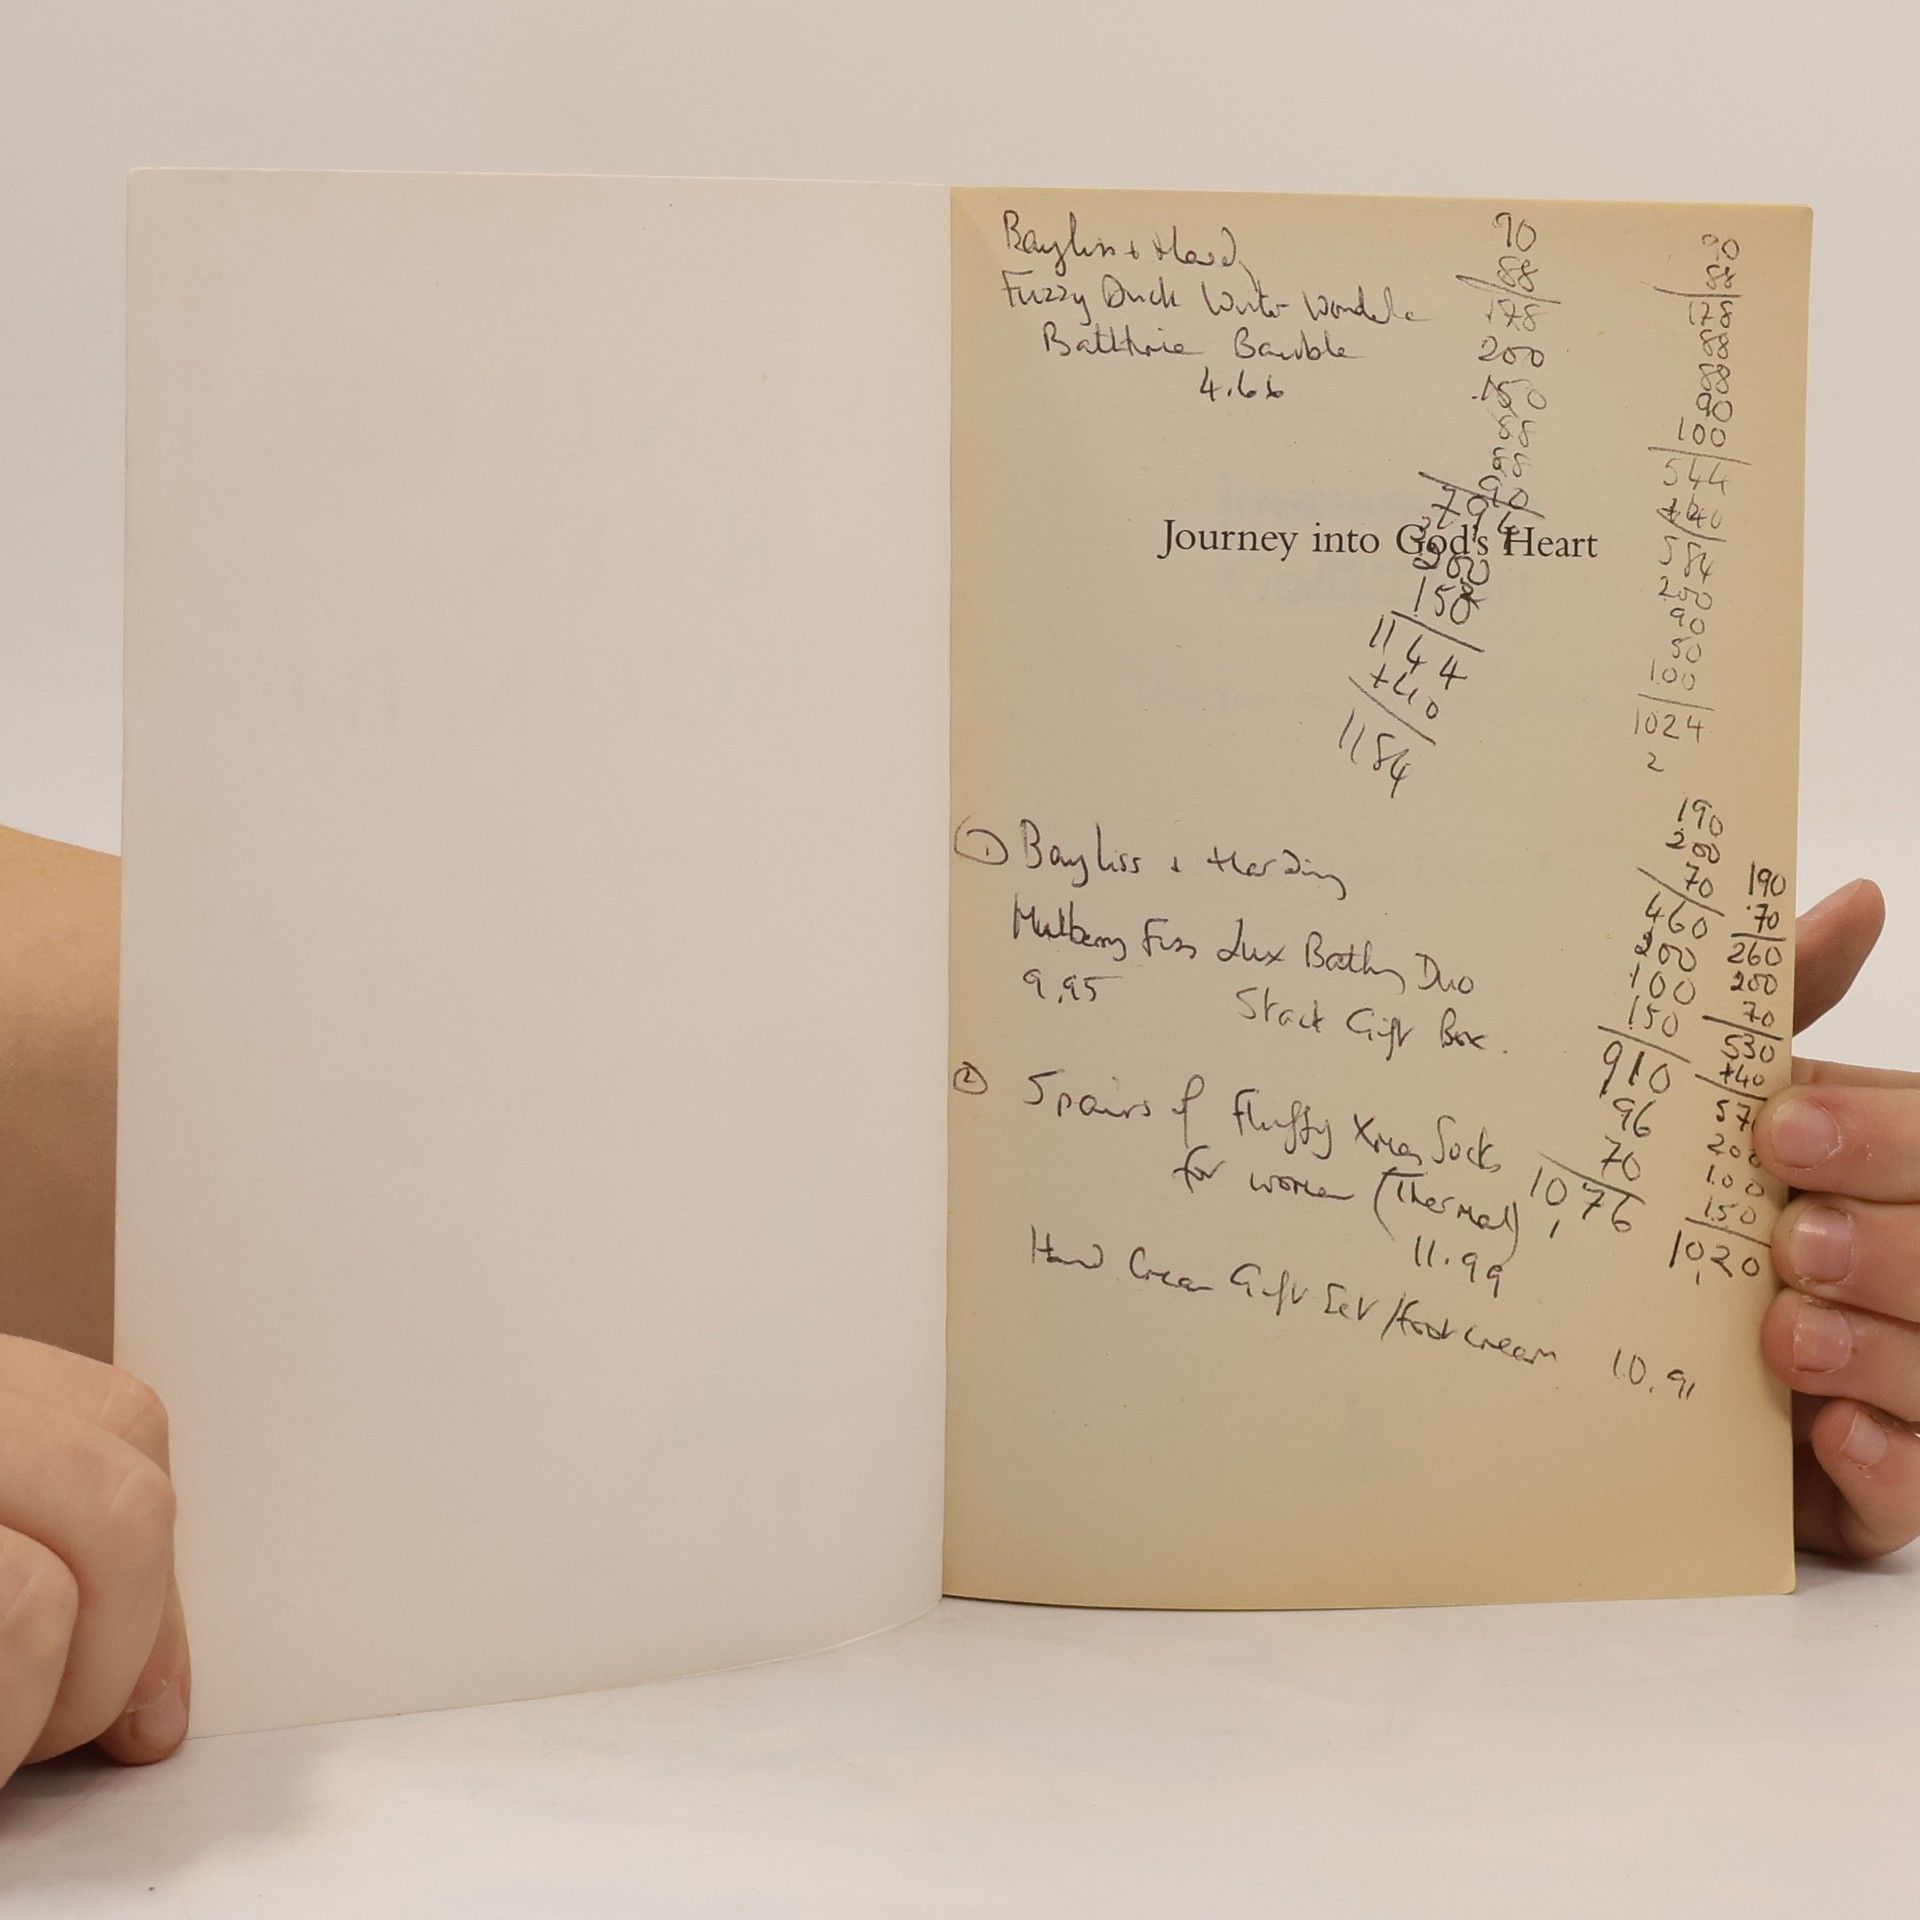 Bayliss + Hard
Fuzzy Duck Winter Wonde
Bauble
4.66
90
88
178
200
150
88
88
90
794
200
150
1144
+40
1184
90
88
178
88
88
90
100
544
+40
584
200
90
50
100
1024
2
Journey into God's Heart
① Bayliss + Harding
Mulberry Fizz Lux Bathing Duo
9.95 Stack Gift Box.
② 5 pairs of Fluffy Xmas Socks
for women (Thermal)
11.99
Hand Cream Gift Set / Foot cream 10.91
190
200
70
460
200
100
150
910
96
70
10,76
190
70
260
200
70
530
+40
57
200
100
150
10,20